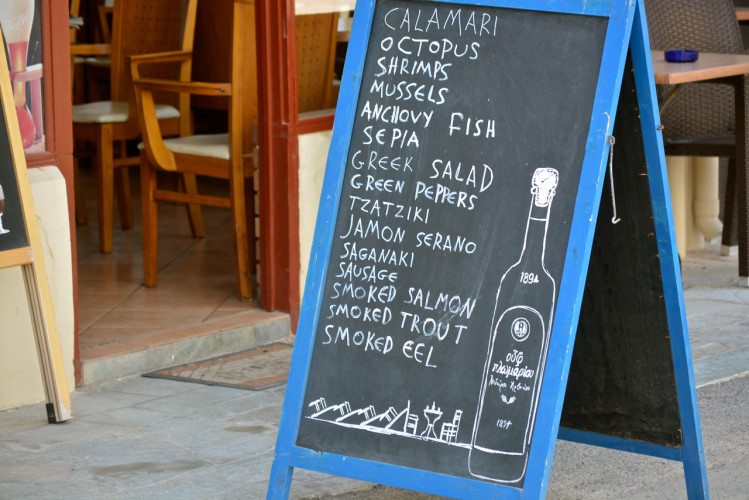 CALAMARI
OCTOPUS
SHRIMPS
MUSSELS
ANCHOVY FISH
SEPIA
GREEK SALAD
GREEN PEPPERS
TZATZIKI
JAMON SERANO
SAGANAKI
SAUSAGE
SMOKED SALMON
SMOKED TROUT
SMOKED EEL
1894
ούζο
πλωμαρίου
1894